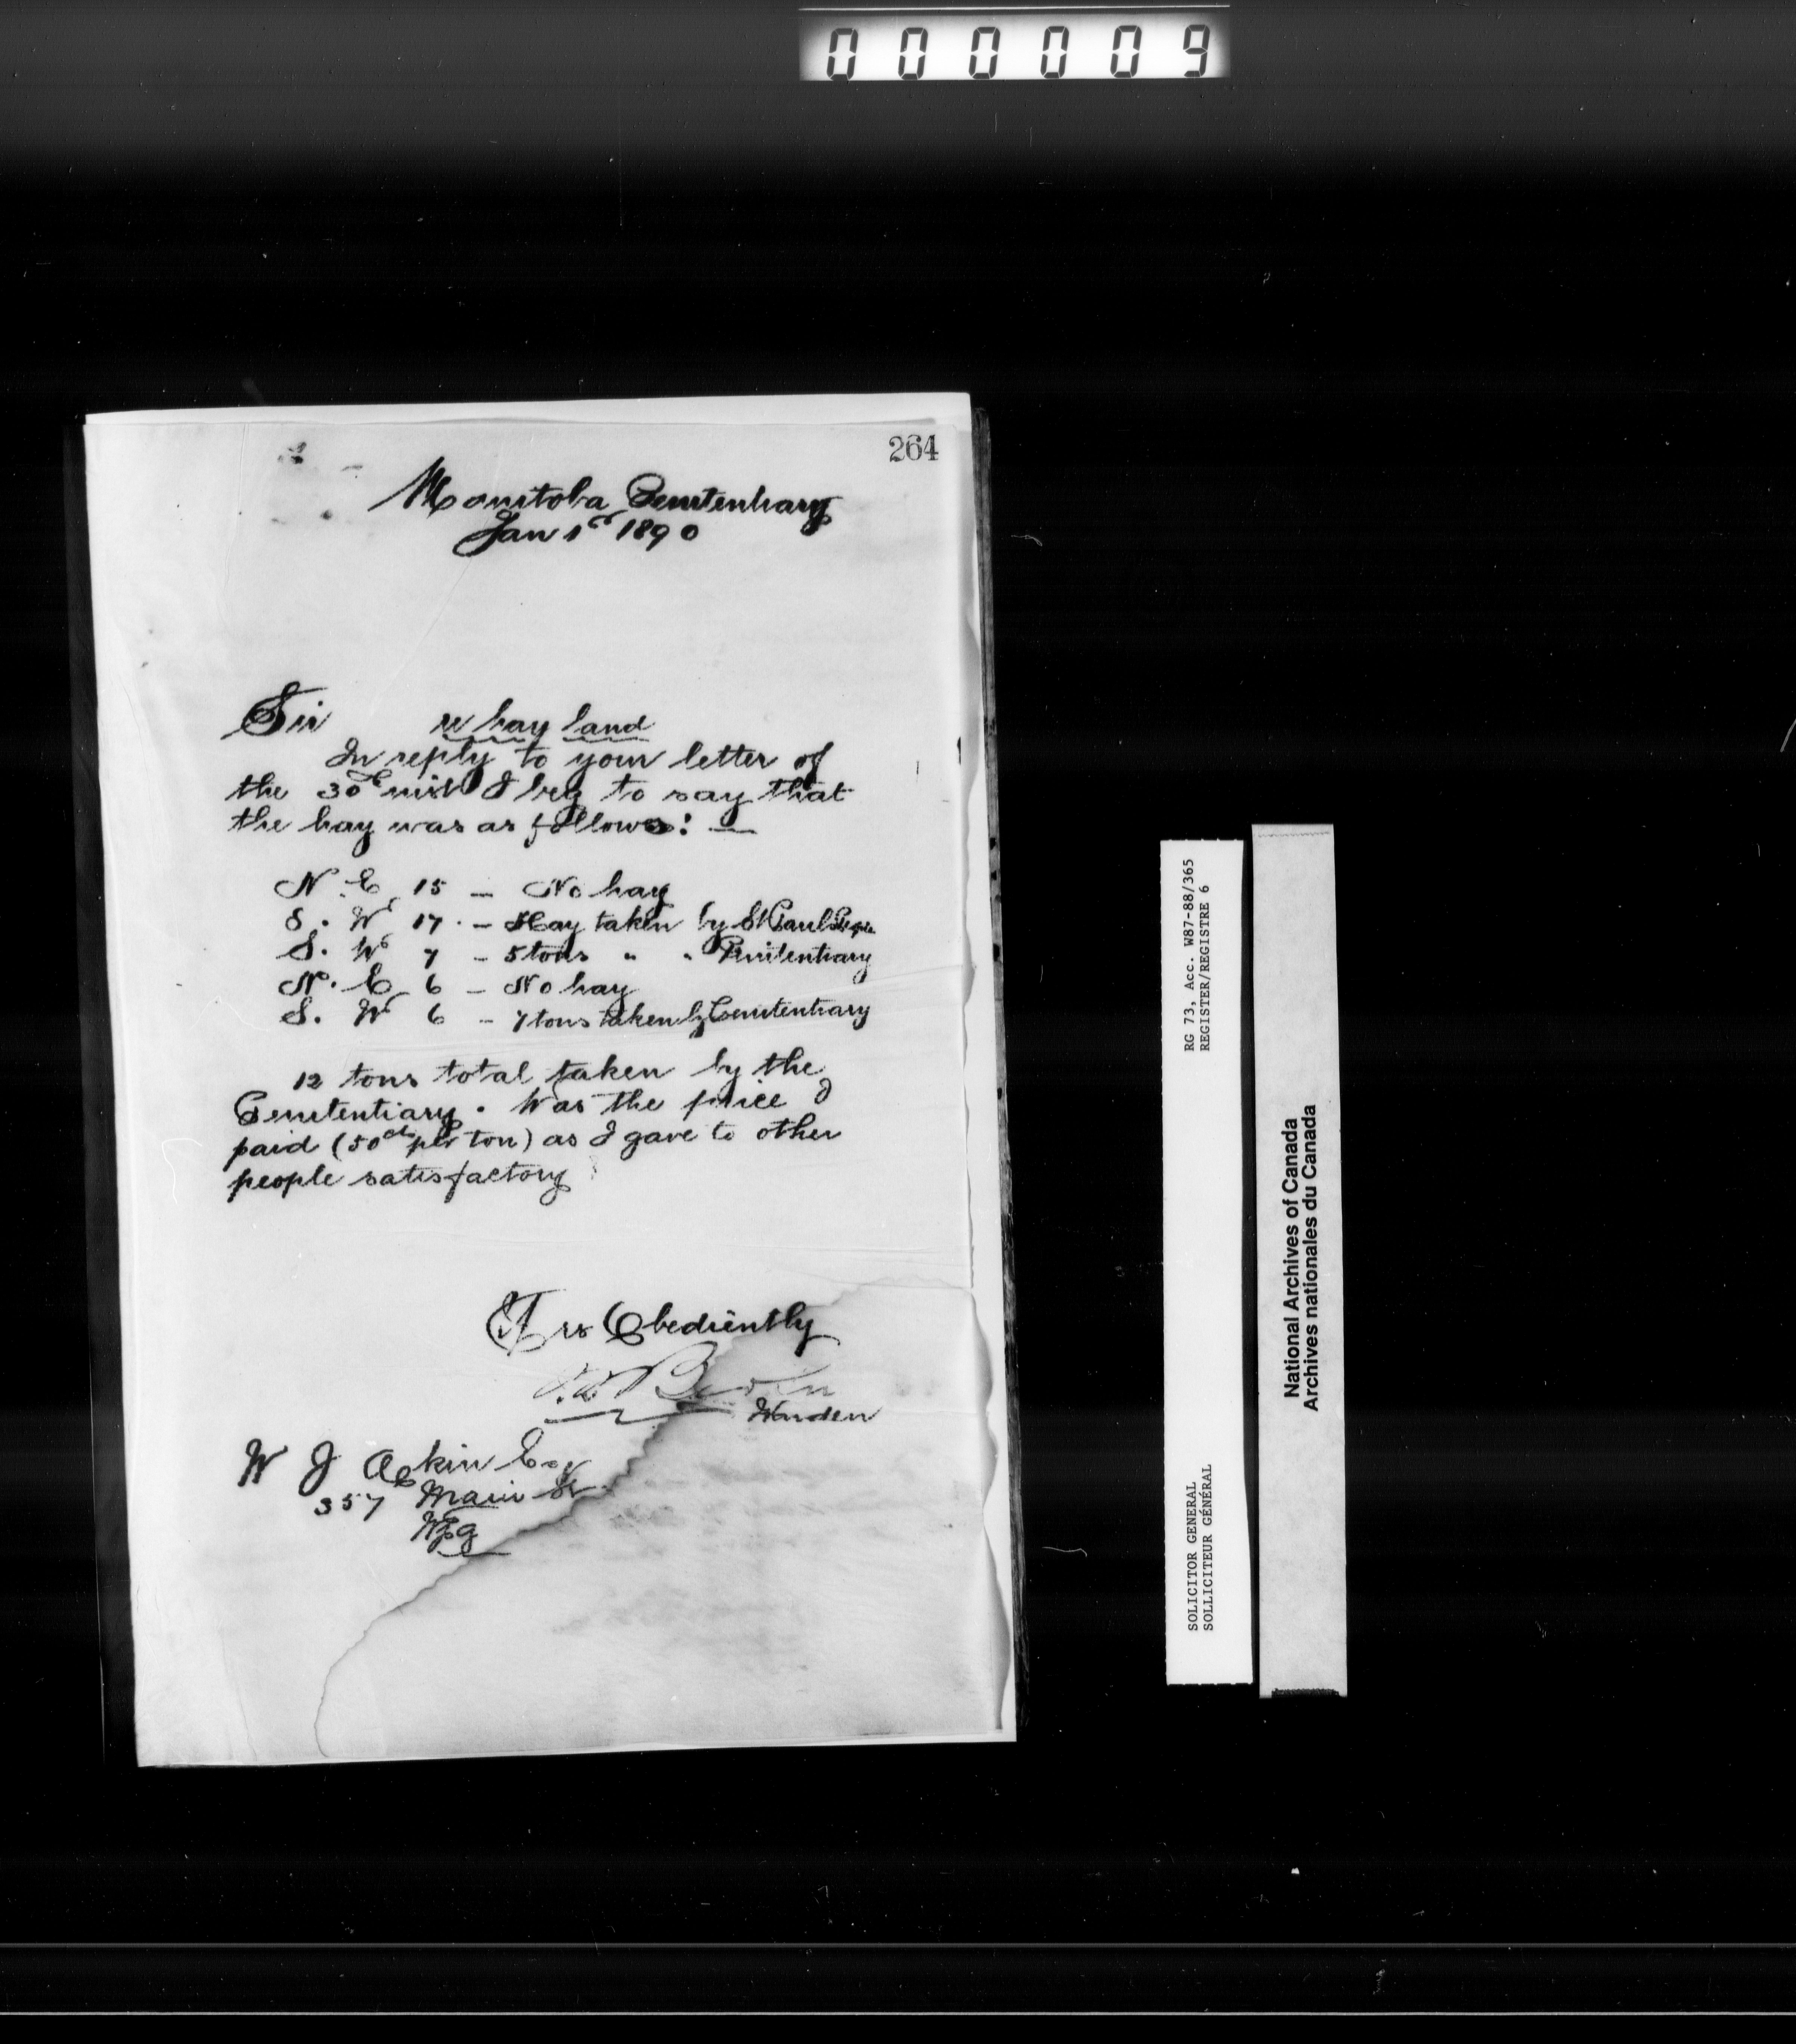 000009
264
Manitoba Penitentiary
Jan 1st 1890
Sir re hay land
In reply to your letter of
the 30th I beg to say that
the hay was as follows: —
N. E 15 — No hay
S. W 17 — Hay taken by St Pauls People
S. W 7 — 5 tons " " Penitentiary
N. E 6 — No hay
S. W 6 — 7 tons taken by Penitentiary
12 tons total taken by the
Penitentiary. Was the price I
paid (50cts per ton) as I gave to other
people satisfactory
Yrs Obediently
Warden
W J Esq
357 Main St
Wpg
RG 73, Acc. W87-88/365
REGISTER/REGISTRE 6
SOLICITOR GENERAL
SOLLICITEUR GÉNÉRAL
National Archives of Canada
Archives nationales du Canada